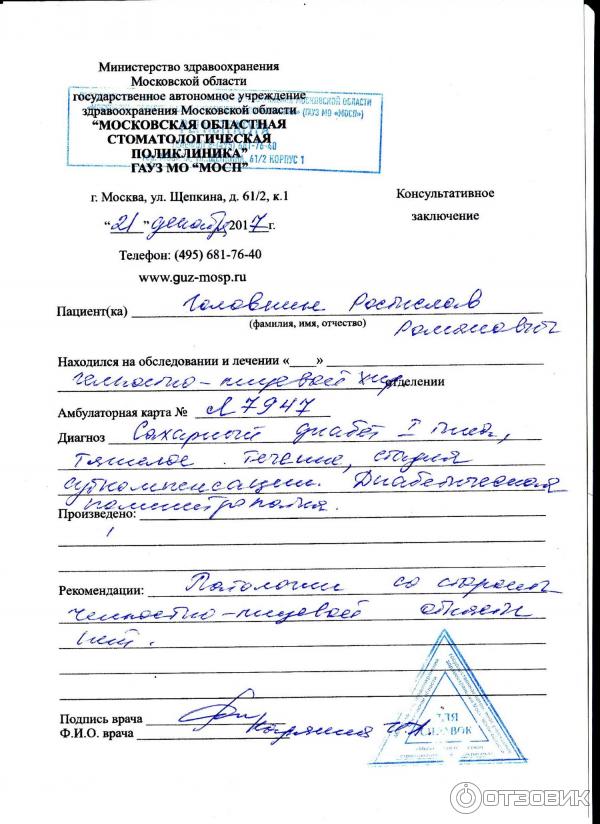 Министерство здравоохранения
Московской области
государственное автономное учреждение
здравоохранения Московской области
“МОСКОВСКАЯ ОБЛАСТНАЯ
СТОМАТОЛОГИЧЕСКАЯ
ПОЛИКЛИНИКА”
ГАУЗ МО “МОСП”
МОСКОВСКОЙ ОБЛАСТИ
(ГАУЗ МО «МОСП»)
681-76-40
61/2 КОРПУС 1
г. Москва, ул. Щепкина, д. 61/2, к.1
Консультативное
заключение
“21” декабря 2017г.
Телефон: (495) 681-76-40
www.guz-mosp.ru
Пациент(ка) Ростислав
(фамилия, имя, отчество)
Романович
Находился на обследовании и лечении «___»
челюстно-лицевой хир отделении
Амбулаторная карта № Л7947
Диагноз Сахарный диабет I типа,
тяжелое течение, стадия
субкомпенсации. Диабетическая
Произведено:
Рекомендации: Патологии со стороны
челюстно-лицевой области
нет.
Подпись врача
Ф.И.О. врача
ДЛЯ
СПРАВОК
ОТЗОВИК